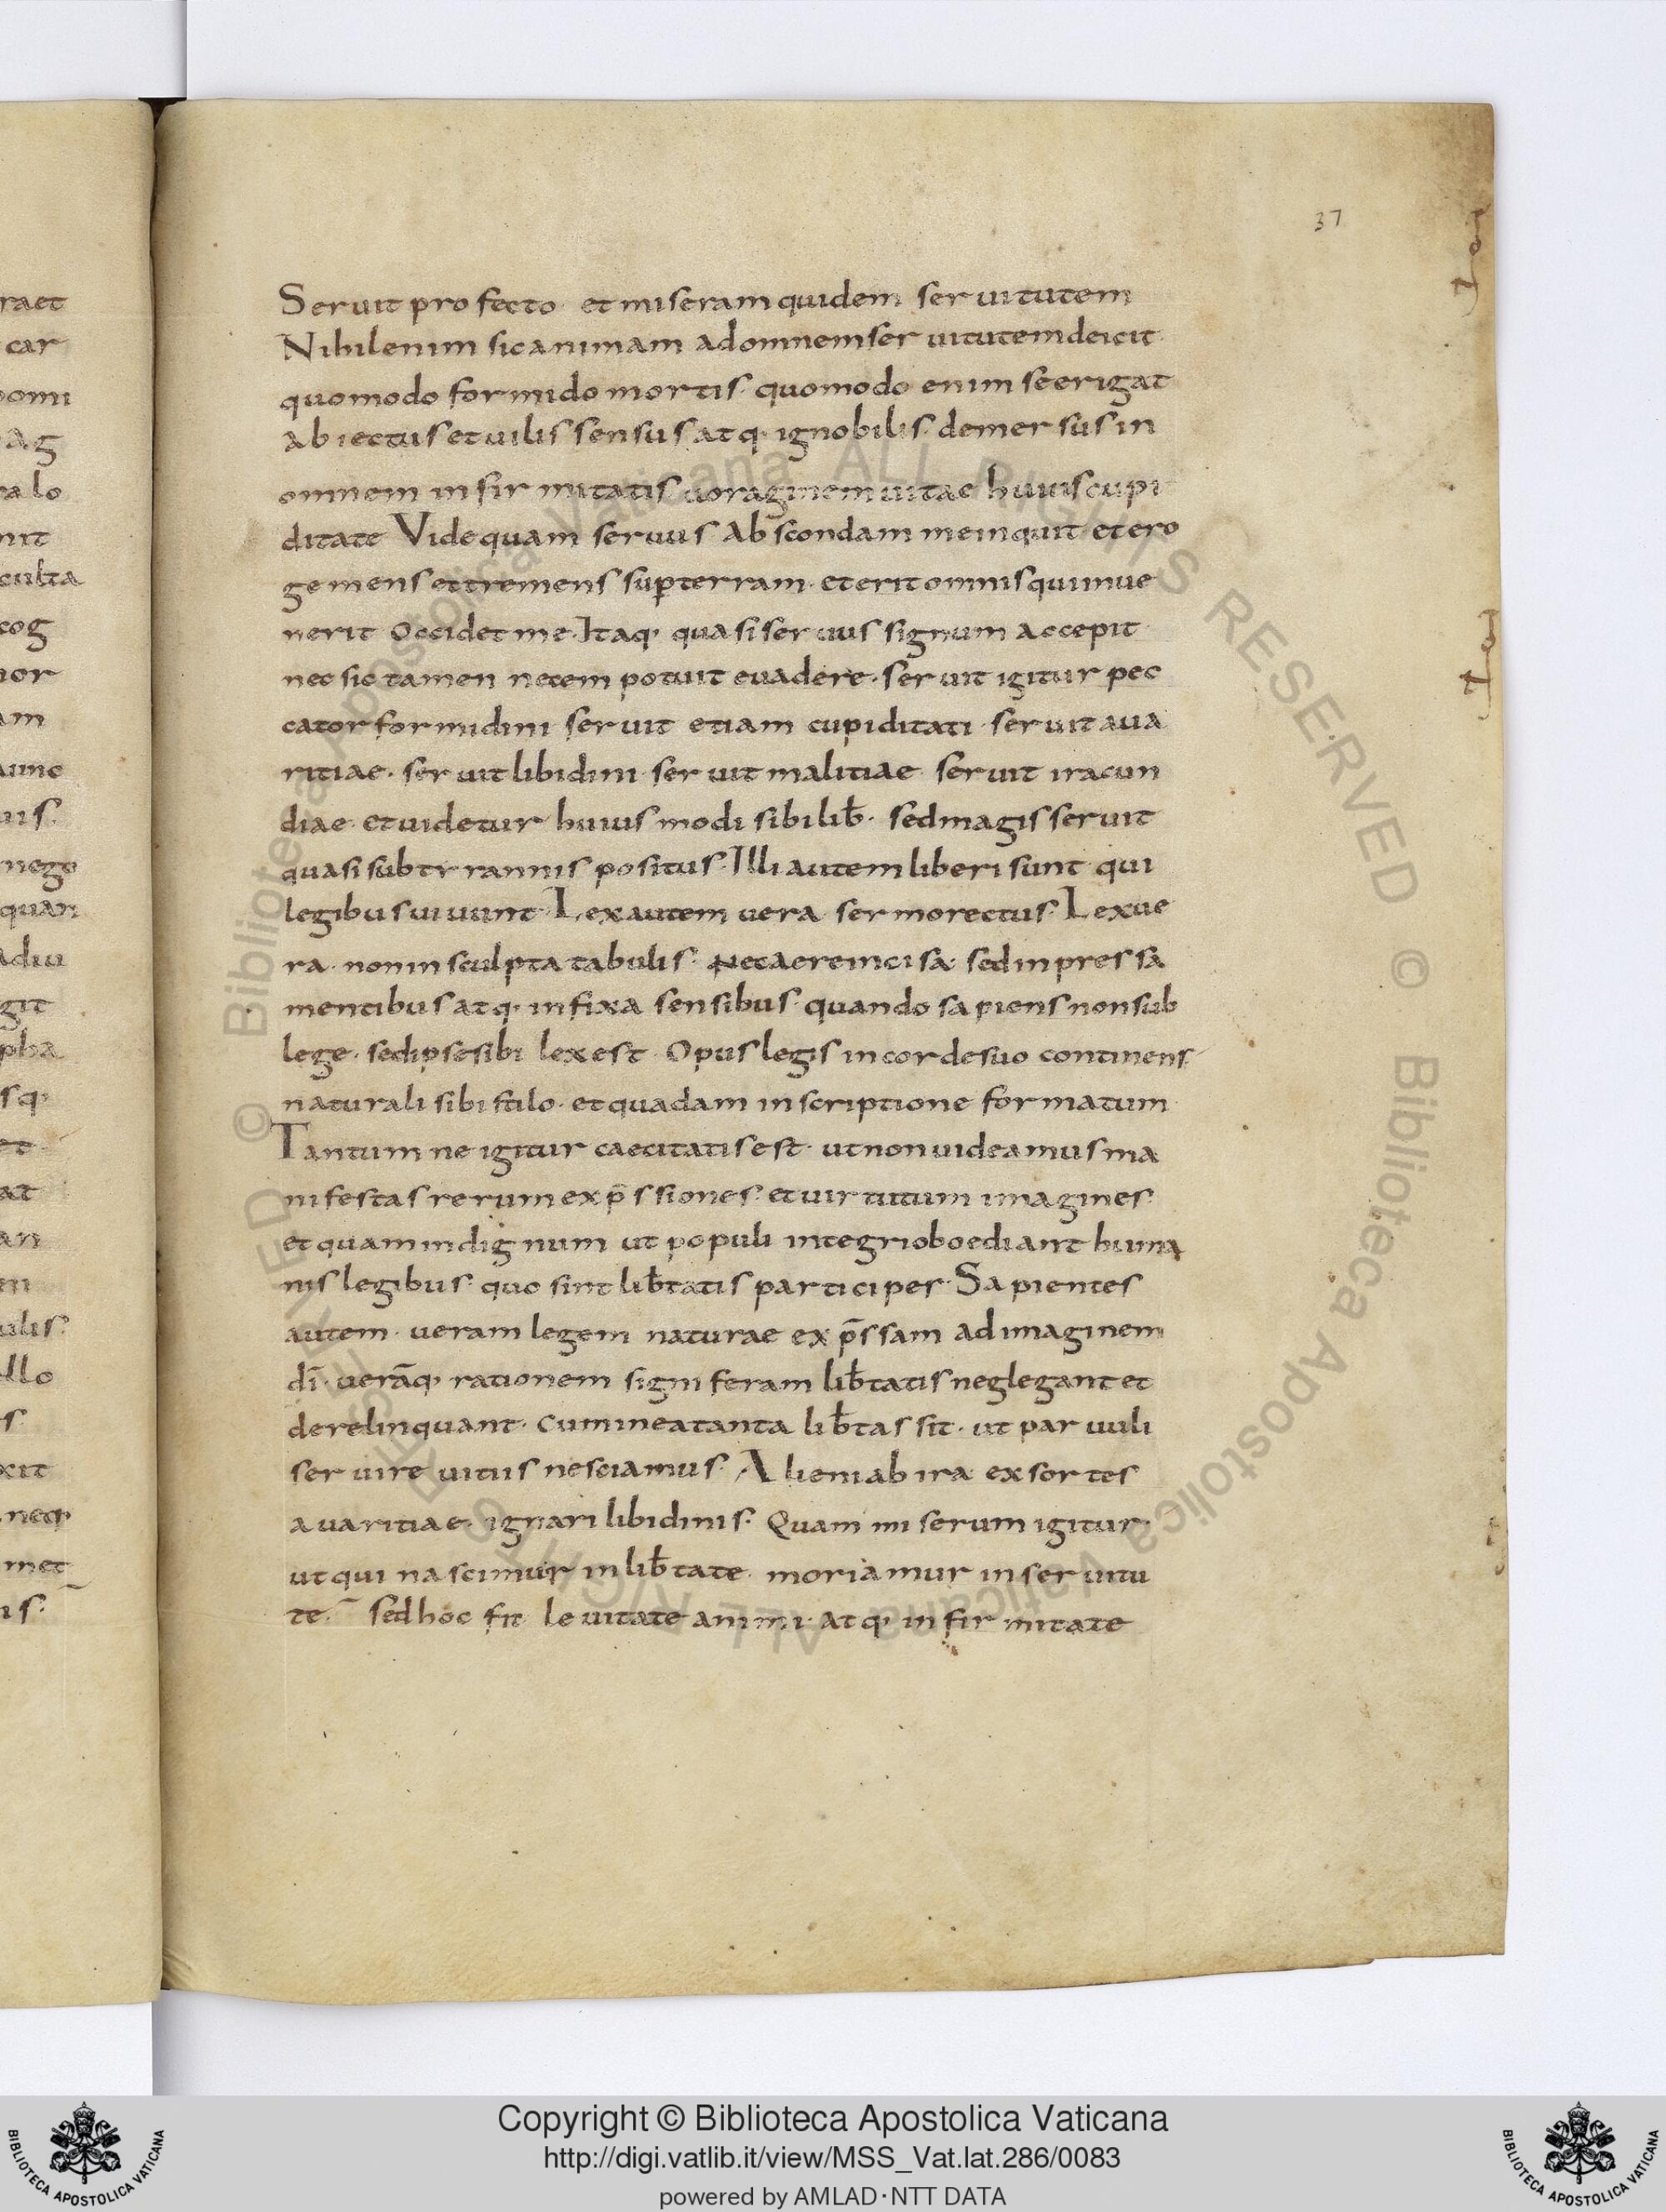 37
raet
car
omi
ag
a lo
nit
culta
cog
nor
am
nego
quan
adiu
git
pha
sq·
et
at
an
ulis·
llo
xit
neq·
met
is·
Seruit profecto· et miseram quidem seruitutem
Nihil enim sic animam ad omnem seruitutem deicit·
quomodo formido mortis· quomodo enim se erigat
abiectus et uilis sensus atq· ignobilis· demersus in
omnem infirmitatis uoraginem uitae huius cupi
ditate Vide quam seruus Abscondam me inquit et ero
gemens et tremens sup terram· et erit omnis qui inue
nerit occidet me· Itaq· quasi seruus signum accepit·
nec sic tamen necem potuit euadere· seruit igitur pec
cator formidini seruit etiam cupiditati· seruit aua
ritiae· seruit libidini· seruit malitiae seruit iracun
diae· et uidetur huiusmodi sibi lib̄· sed magis seruit
quasi sub tyrannis positus· Illi autem liberi sunt qui
legibus uiuunt· Lex autem uera sermo rectus· Lex ue
ra· non insculpta tabulis· Nec aere incisa· sed inpressa
mentibus atq· infixa sensibus· quando sapiens non sub
lege· sed ipse sibi lex est· Opus legis in corde suo continens·
naturali sibi stilo· et quadam inscriptione formatum
Tantum ne igitur caecitatis est· ut non uideamus ma
nifestas rerum exp̄ssiones· et uirtutum imagines·
et quam indignum ut populi integri oboediant huma
nis legibus· quo sint lib̄tatis participes· Sapientes
autem· ueram legem naturae exp̄ssam ad imaginem
dī· uerāq· rationem signiferam lib̄tatis neglegant et
derelinquant· cum in ea tanta lib̄tas sit· ut paruuli
seruire uitiis nesciamus· Alieni ab ira exsortes
auaritiae· ignari libidinis· Quam miserum igitur·
ut qui nascimur in lib̄tate· moriamur in seruitu
te· sed hoc fit leuitate animi· atq· infirmitate
© Biblioteca Apostolica Vaticana ALL RIGHTS RESERVED © Biblioteca Apostolica Vaticana ALL RIGHTS RESERVED
Copyright © Biblioteca Apostolica Vaticana
http://digi.vatlib.it/view/MSS_Vat.lat.286/0083
powered by AMLAD·NTT DATA
BIBLIOTECA APOSTOLICA VATICANA
BIBLIOTECA APOSTOLICA VATICANA